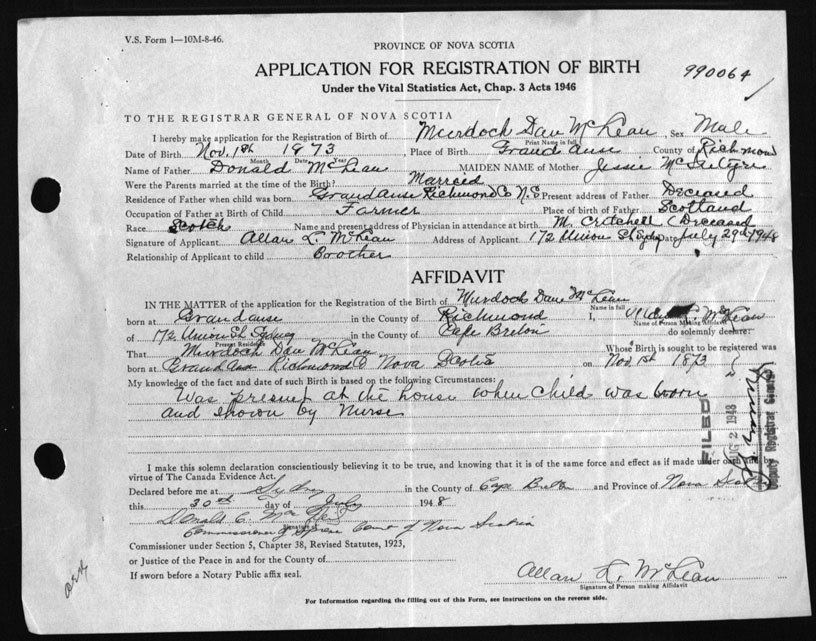 V.S. Form 1—10M-8-46.
PROVINCE OF NOVA SCOTIA
APPLICATION FOR REGISTRATION OF BIRTH
990064
Under the Vital Statistics Act, Chap. 3 Acts 1946
TO THE REGISTRAR GENERAL OF NOVA SCOTIA
I hereby make application for the Registration of Birth of Murdock Dan McLean, Sex Male
Print Name in full
Date of Birth Nov. 1st 1873, Place of Birth Grand Anse County of Richmond
Month Date Year
Name of Father Donald McLean MAIDEN NAME of Mother Jessie McIntyre
Were the Parents married at the time of the Birth? Married
Residence of Father when child was born Grand Anse Richmond Co N.S Present address of Father Deceased
Occupation of Father at Birth of Child Farmer Place of birth of Father Scotland
Race Scotch Name and present address of Physician in attendance at birth M. (Deceased
Signature of Applicant Allan L. McLean Address of Applicant 172 Union St Sydney Date July 29th 1948
Relationship of Applicant to child Boother
AFFIDAVIT
IN THE MATTER of the application for the Registration of the Birth of Murdock Dan McLean
Name in full
born at Grand anse in the County of Richmond I, Allan L. McLean
Name of Person Making Affidavit
of 172 Union St. Sydney in the County of Cape Breton do solemnly declare:
Present Residence
That Murdock Dan McLean Whose Birth is sought to be registered was
born at Grand Anse Richmond Co Nova Scotia on Nov 1st 1873
My knowledge of the fact and date of such Birth is based on the following Circumstances:
Was present at the house when child was born
and shown by Nurse
FILED
2 1948
Deputy Registrar General
I make this solemn declaration conscientiously believing it to be true, and knowing that it is of the same force and effect as if made under oath and by
virtue of The Canada Evidence Act.
Declared before me at Sydney in the County of Cape Breton and Province of Nova Scotia
this 30th day of July 1948
Donald C.
Signature of
Commissioner of Supreme Court of Nova Scotia
Commissioner under Section 5, Chapter 38, Revised Statutes, 1923,
or Justice of the Peace in and for the County of
If sworn before a Notary Public affix seal.
Allan L. McLean
Signature of Person making Affidavit
For Information regarding the filling out of this Form, see instructions on the reverse side.